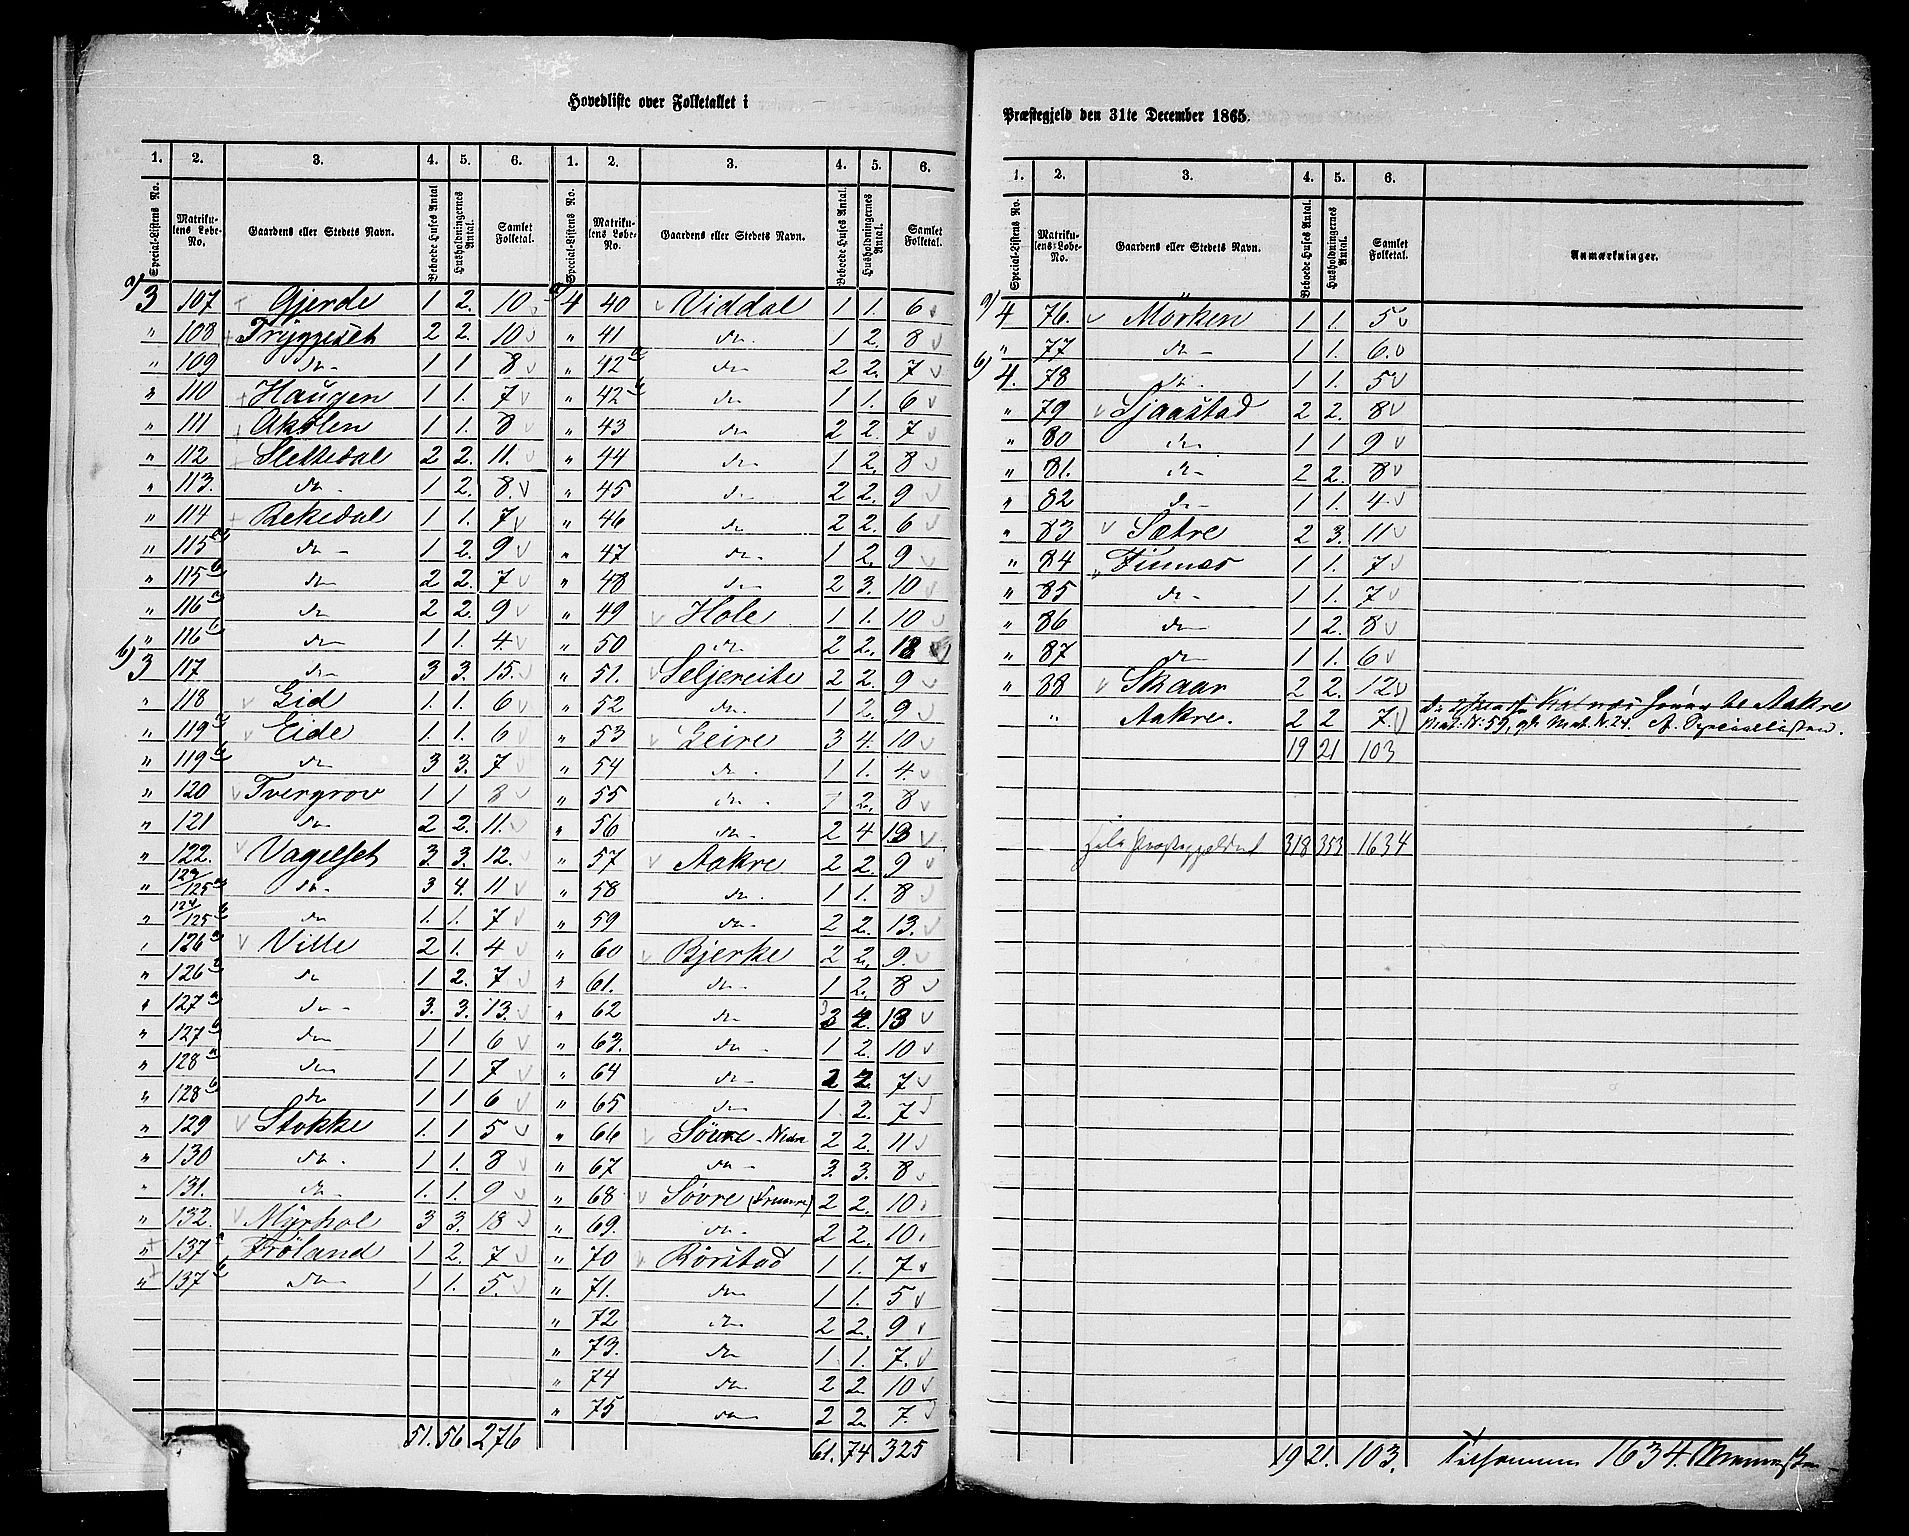 Hovedliste over Folketallet i
1. 2. 3. 4. 5. 6. 1. 2. 3. 4. 5. 6.
Special-Listens No. Matrikulens Løbe-No. Gaardens eller Stedets Navn. Beboede Huses Antal Husholdningernes Antal. Samlet Folketal. Special-Listens No. Matrikulens Løbe-No. Gaardens eller Stedets Navn. Beboede Huses Antal. Husholdningernes Antal. Samlet Folketal.
a) 3 107 Gjerde 1 2. 10
" 108 Tryggeset 2 2. 10
" 109 do 1 1 8
" 110 Haugen 1 1. 7
" 111 Akslen 1 1. 8
" 112 Slettedal 2 2. 11.
" 113. do 1 2. 8.
" 114 Bekedal 1 1. 7
" 115 a do 1 2. 9
" 115 b do 2 2. 7
" 116 a do 2 2. 9
" 116 b do 1 1. 4.
b) 3 117 do 3 3. 15.
" 118 Lid 1. 1. 6
" 119 a Eide 1 1. 6
" 119 b do 3 3. 7
" 120 Tvergrov 1 1 8
" 121 do 2 2. 11.
" 122. Vagelset 3. 3. 12.
" 123/125 a do 3 4. 11
" 124/125 b do 1. 1. 7
" 126 a Ville 2 1. 4
" 126 b do 1 2. 7
" 127 a do 3. 3. 13.
" 127 b do 1 1 6
" 128 a do 1 1 7
" 128 b do 1 1 6
" 129 Stokke 1. 1 5
" 130 do 1 1. 8
" 131. do 1. 1. 9
" 132. Myrhol 3 3. 18
" 137 a Frøland 1 2. 7
" 137 b do 1 1. 5.
51. 56. 276
a) 4 40 Viddal 1 1. 6
" 41 do 1 2. 8
" 42 a do 2 2. 7
" 42 b do 1 1. 6
" 43 do 2 2. 7
" 44 do 1 2. 8
" 45 do 2 2. 9
" 46 do 2 2. 6
" 47 do 1 2. 9
" 48 do 2 3. 10
" 49 Hole 1 1. 10
" 50 do 2 2. 18
" 51. Seljereite 2 2. 9
" 52 do 1 2. 9
" 53 Leire 3 4. 10
" 54 do 1 1. 4.
" 55 do 1 2. 8
" 56 do 2 4 13
" 57 Aakre 2 2. 9
" 58 do 1 1. 8
" 59 do 2 2. 13.
" 60 Bjerke 2 2. 9.
" 61. do 1 2. 8
" 62 do 3 4 13
" 63. do 1 2. 10
" 64 do 2 2. 7
" 65 do 1. 2. 7
" 66 Søvre - Nedre 2 2. 11
" 67 do 3. 3. 8
" 68 Søvre 2 2. 10
" 69. do 2 2. 10
" 70 Rørstad 1 1. 7
" 71. do 1 1. 5
" 72 do 2 2. 9
" 73. do 1 1. 7.
" 74 do 2 2. 10
" 75 do 2 2. 7.
61. 74. 325
Præstegjeld den 31te December 1865.
1. 2. 3. 4. 5. 6.
Special-Listens No. Matrikulens Løbe-No. Gaardens eller Stedets Navn. Beboede Huses Antal. Husholdningernes Antal. Samlet Folketal. Anmærkninger.
a) 4 76. Mörken 1 1. 5
" 77 do 1 1. 6.
b) 4. 78 do 1 1. 5
" 79 Sjaastad 2 2. 8
" 80 do 1 1 9
" 81. do 2 2. 8
" 82 do 1 1. 4.
" 83 Sætre 2 3. 11
" 84 Finnes 1 1. 7
" 85 do 1 1. 7
" 86 do 1 2. 8
" 87 do 1 1. 6
" 88 Skaar 2 2. 12
" Aakre. 2 2 7 Aakre
19 21 103
Hele Præstegjeldet 318 353 1634
19 21. 103. Tilsammen 1634.